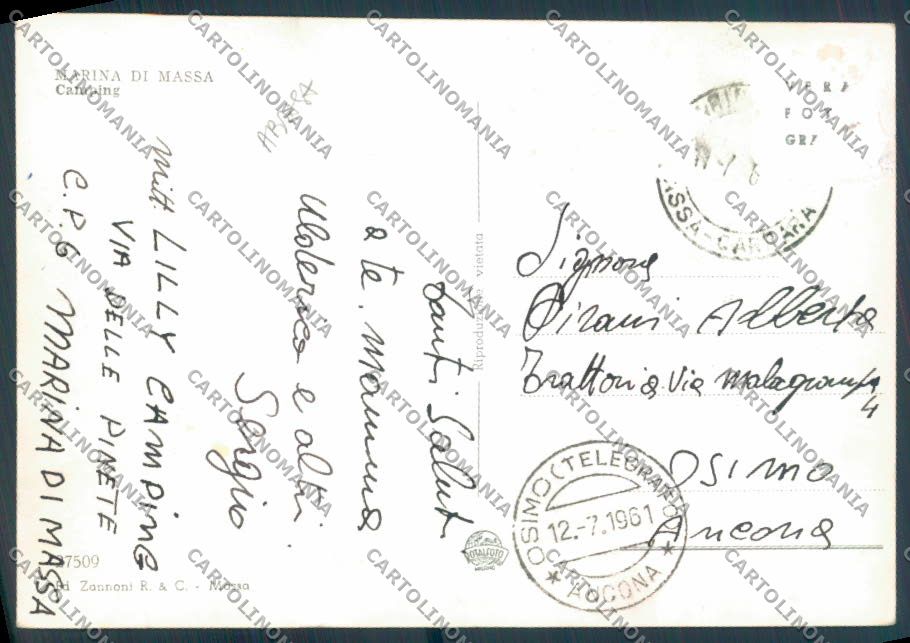 MARINA DI MASSA
Camping
Tanti Saluti
a te. Mamma
e altri.
Sergio
Mitt. LILLY CAMPING
VIA DELLE PINETE
C.P. 6 MARINA DI MASSA
Riproduzione vietata
VERA
FOT
GRA
MASSA-CARRARA
Signora
Pirani Alberta
Trattoria Via Malagrampa
4
Osimo
Ancona
OSIMO (TELEGRAFO)
12.-7.1961
* ANCONA *
ROTALFOTO
MILANO
37509
Ed Zannoni R. & C. - Massa
CARTOLINOMANIA